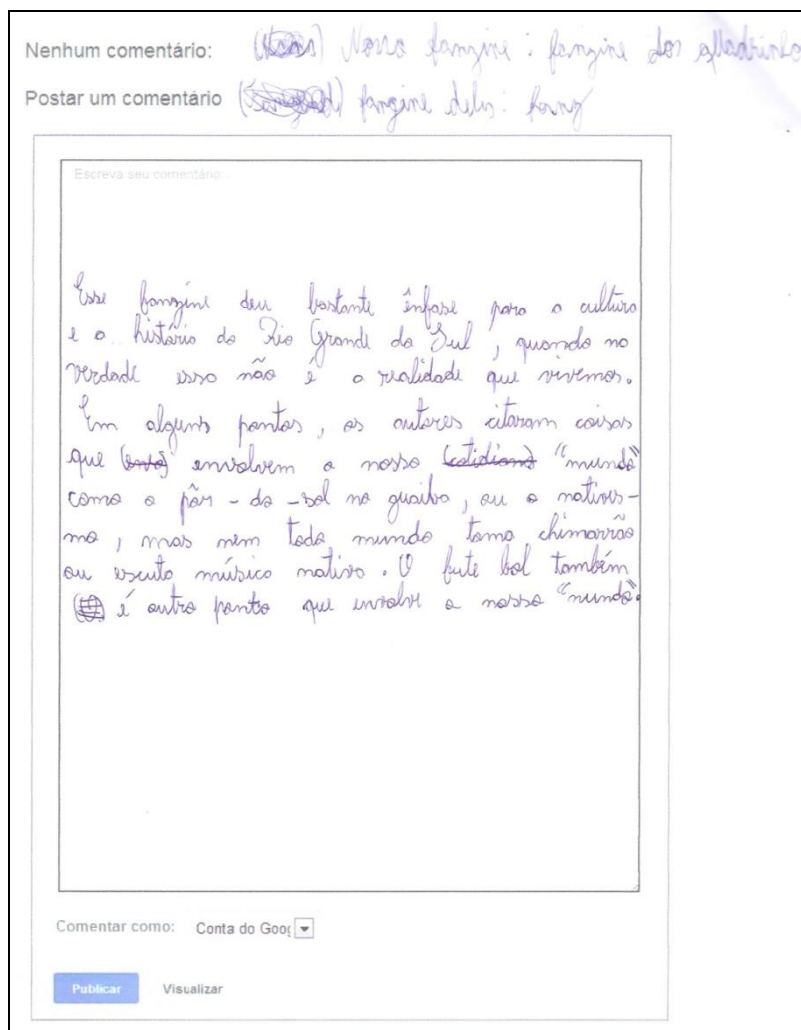 Nenhum comentário: Nosso fanzine: fanzine dos quadrinho
Postar um comentário fanzine deles: fanz
Escreva seu comentário...
Esse fanzine deu bastante ênfase para a cultura
e a história do Rio Grande do Sul, quando na
verdade isso não é a realidade que vivemos.
Em alguns pontos, os autores citaram coisas
que envolvem o nosso (cotidiano) "mundo"
como o pôr-do-sol no guaíba, ou o nativis-
mo, mas nem todo mundo toma chimarrão
ou escuta música nativa. O fute bol também
é outro ponto que envolve o nosso "mundo".
Comentar como: Conta do Goog
Publicar Visualizar